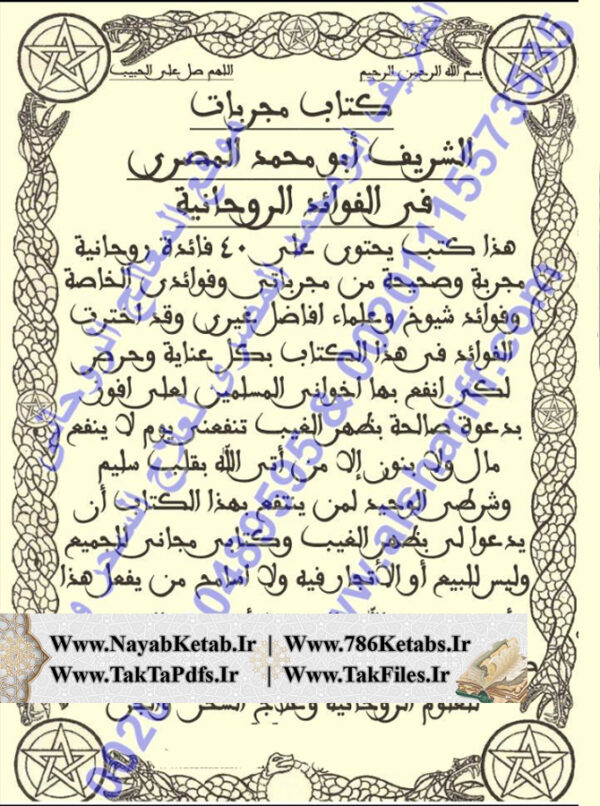 بسم الله الرحمن الرحيم
اللهم صل على الحبيب
كتاب مجربات
الشريف أبو محمد المصرى
فى الفوائد الروحانية
هذا كتب يحتوى على ٤٠ فائدة روحانية
مجربة وصحيحة من مجرباتى وفوائدى الخاصة
وفوائد شيوخ وعلماء افاضل غيرى وقد اخترت
الفوائد فى هذا الكتاب بكل عناية وحرص
لكى انفع بها اخوانى المسلمين لعلى افوز
بدعوة صالحة بظهر الغيب تنفعنى يوم لا ينفع
مال ولا بنون إلا من أتى الله بقلب سليم
وشرطى الوحيد لمن ينتفع بهذا الكتاب أن
يدعوا لى بظهر الغيب وكتابى مجانى للجميع
وليس للبيع أو الأتجار فيه ولا اسامح من يفعل هذا
Www.NayabKetab.Ir | Www.786Ketabs.Ir
Www.TakTaPdfs.Ir | Www.TakFiles.Ir
للعلوم الروحانية وعلاج السحر والجن
www.alshariff.com